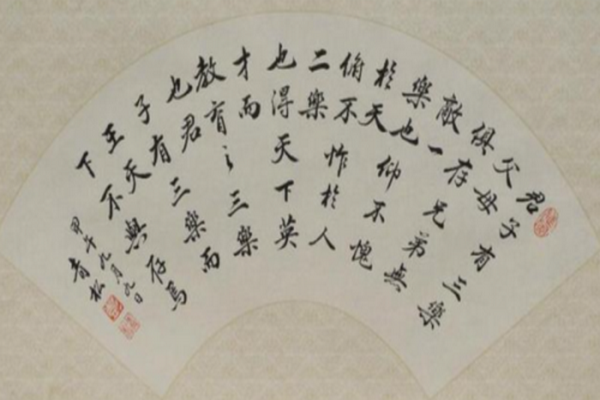 君子有三樂
父母
俱存兄弟無
敵一
樂也仰不愧
於天
俯不怍於人
二樂
也得天下英
才而
教育之三樂
也君
子有三樂而
王天
下不與存焉
甲午九月九日
青松